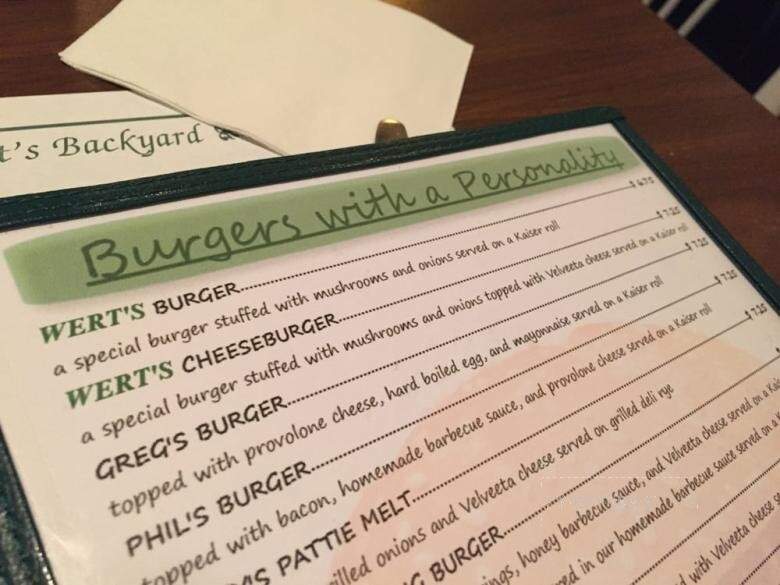 t's Backyard &
Burgers with a Personality
WERT'S BURGER $ 6.75
a special burger stuffed with mushrooms and onions served on a Kaiser roll
WERT'S CHEESEBURGER $ 7.25
a special burger stuffed with mushrooms and onions topped with Velveeta cheese served on a Kaiser roll
GREG'S BURGER $ 7.25
topped with provolone cheese, hard boiled egg, and mayonnaise served on a Kaiser roll
PHIL'S BURGER $ 7.25
topped with bacon, homemade barbecue sauce, and provolone cheese served on a Kaiser roll
PATTIE MELT $ 7.25
grilled onions and Velveeta cheese served on grilled deli rye
BURGER
honey barbecue sauce, and Velveeta cheese served on a
in our homemade barbecue sauce served on a
with Velveeta cheese